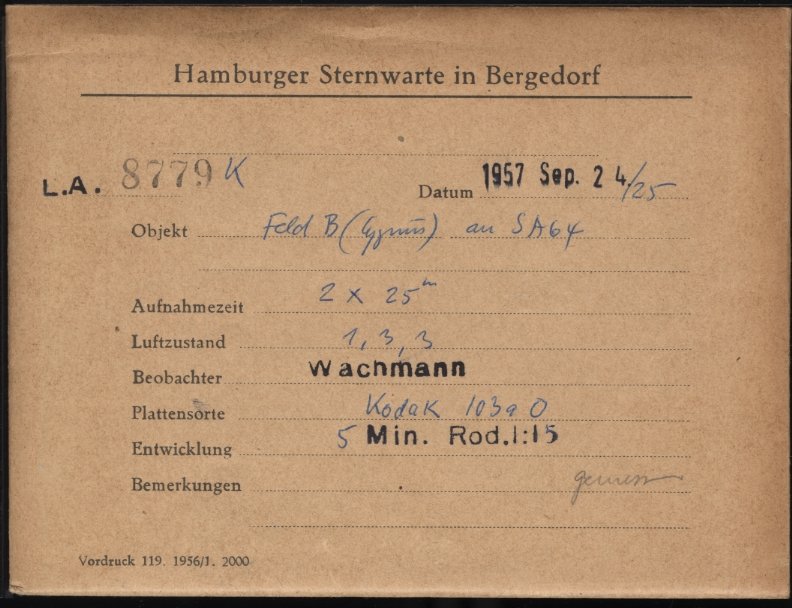 Hamburger Sternwarte in Bergedorf
L.A. 8779 K
Datum 1957 Sep. 24/25
Objekt Feld B (Cygnus) an SA64
Aufnahmezeit 2 x 25ᵐ
Luftzustand 1, 3, 3
Beobachter Wachmann
Plattensorte Kodak 103a O
Entwicklung 5 Min. Rod.1:15
Bemerkungen
Vordruck 119. 1956/1. 2000